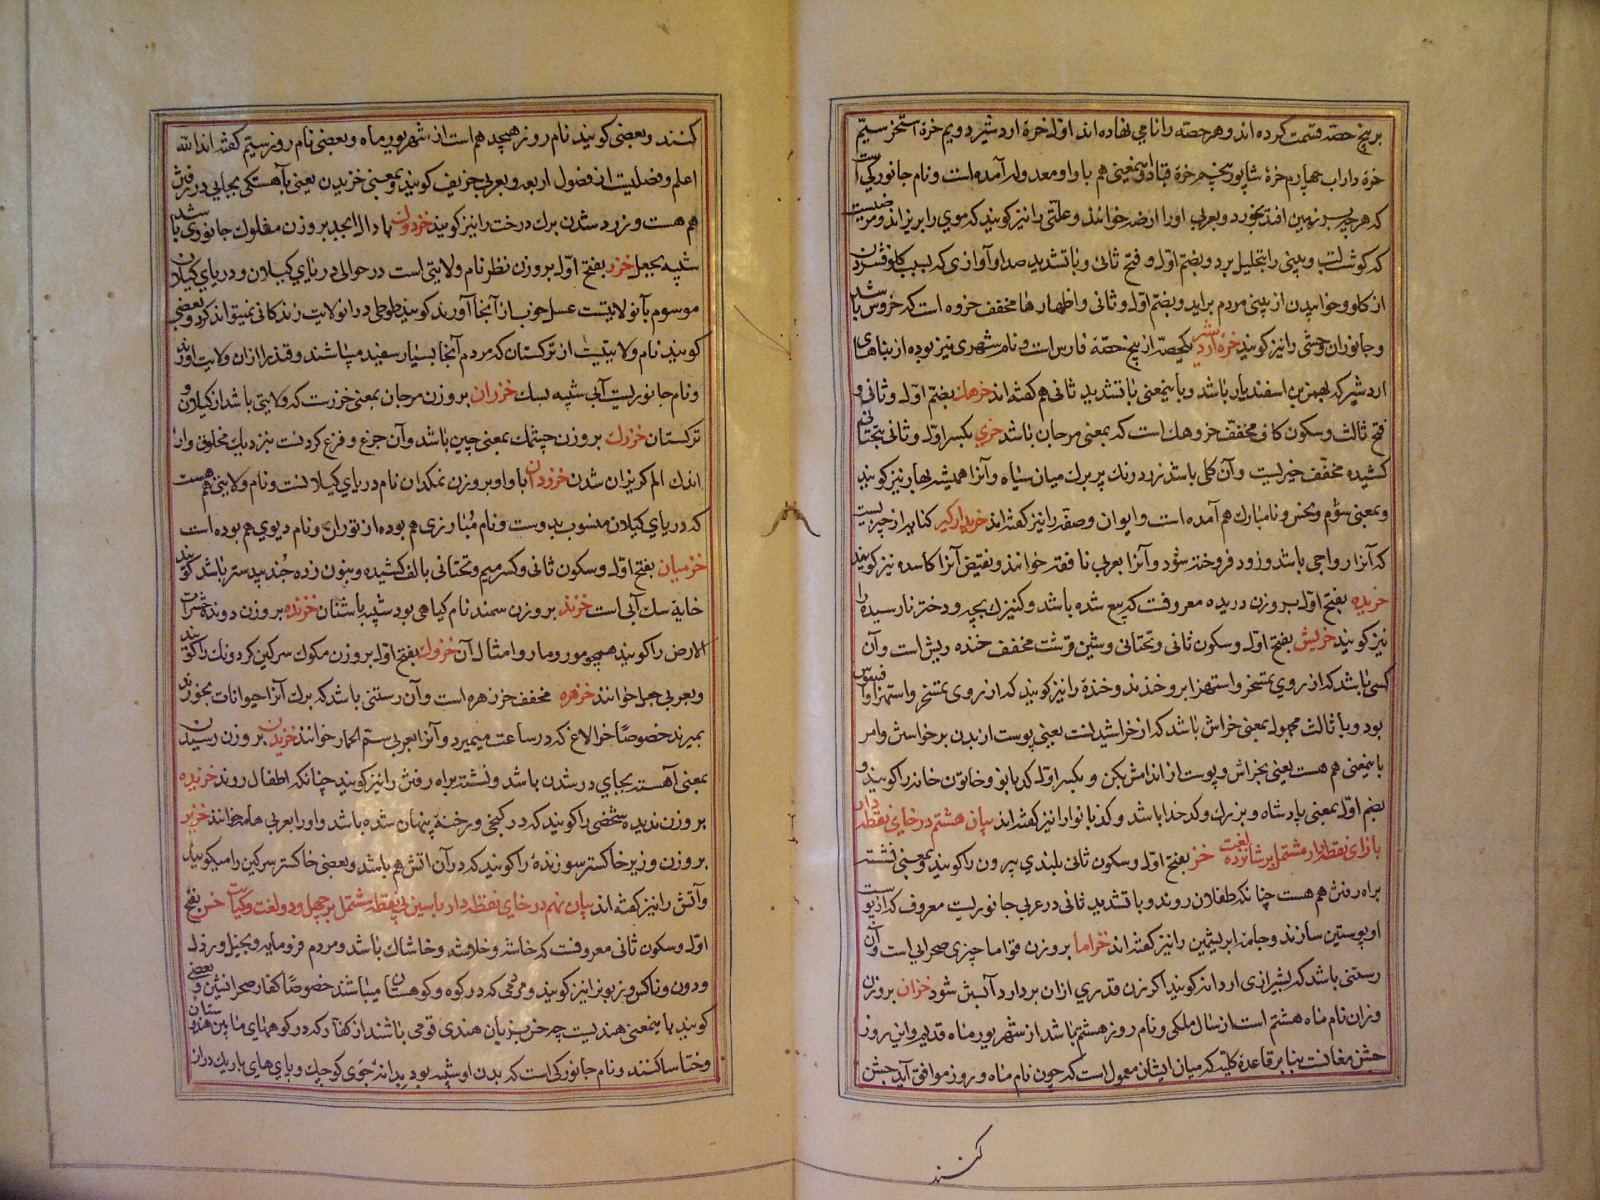 بر پنج حصّه قسمت کرده اند و هر حصّه را نامی نهاده اند اول خرهٔ اردشیر دویم خرهٔ استخر سیّم
خرهٔ داراب چهارم خرهٔ شاپور پنجم خرهٔ قباد و بمعنی هم با واو معدوله آمده است و نام جانورکی است
که هر چه بر زمین افتد بخورد و بعربی او را ارضه خوانند و علّتی را نیز کویند که موی را بریزاند و مرضیست
که کوشت لب و بینی را بتحلیل برد و بضم اوّل و فتح ثانی و با تشدید صدا و آوازی که بسبب کلو فشردن
از کلو و خوابیدن از بینی مردم براید و بضم اوّل و ثانی و اظهار ها مخفف خروه است که خروس باشد
و جانوران وحشی را نیز کویند خره اردشیر یکحصّه از پنج حصّهٔ فارس است و نام شهری نیز بوده از بناهای
اردشیر که بهمن بن اسفندیار باشد و باینمعنی با تشدید ثانی هم کفته اند خرهك بضمّ اوّل و ثانی و
فتح ثالث و سکون کاف مخفّف خروهك است که بمعنی مرجان باشد خری بکسر اوّل و ثانی بتحتانی
کشیده مخفّف خیریست و آن کلی باشد زرد رنك پر برك میان سیاه و آنرا همیشه بهار نیز کویند
و بمعنی شؤم و نحس و نامبارك هم آمده است و ایوان و صفه را نیز کفته اند خریدارکیر کنایه از چیزیست
که آنرا رواجی باشد و زود فروخته شود و آنرا بعربی نافقه خوانند و نقیض آنرا کاسده نیز کویند
خریده بفتح اوّل بر وزن دریده معروفست که بیع شده باشد و کنیزك بچه و دختر نارسیده را
نیز کویند خریش بفتح اوّل و سکون ثانی و تحتانی و شین قرشت مخفف خنده ریش است و آن
کسی باشد که از روی تمسخر و استهزا برو خندند و خنده را نیز کویند که از روی تمسخر و استهزا و افسوس
بود و با ثالث مجهول بمعنی خراش باشد که از خراشیدنست یعنی پوست از بدن برخواستن و امر
باینمعنی هم هست یعنی بخراش و پوست از اندامش بکن و بکسر اوّل کدبانو و خاتون خانه را کویند و
بضم اوّل بمعنی پادشاه و بزرك و کدخدا باشد و کدبانو را نیز کفته اند بیان هشتم در خای نقطه دار
با زای نقطه دار مشتمل بر شانزده لغت خز بفتح اوّل و سکون ثانی بلندی بیرون ران را کویند و بمعنی نشسته
براه رفتن هم هست چنانکه طفلان روند و با تشدید ثانی در عربی جانوریست معروف که از پوست
او پوستین سازند و جامهٔ ابریشمین را نیز کفته اند خزاما بر وزن قواما چیزی صحرایی است و آن
رستنی باشد که بشیرازی اردانه کویند اکر زن قدری ازان بردارد آبستن شود خزان بر وزن
وزان نام ماه هشتم است از سال ملکی و نام روز هشتم باشد از شهریور ماه قدیم و این روز
جشن مغانست بنا بر قاعدهٔ کلیّه که میان ایشان معمول است که چون نام ماه و روز موافق آید جشن
کنند
کنند و بعضی کویند نام روز هیجدهم است از شهریور ماه و بعضی نام روز سیّم کفته اند الله
اعلم و فصلیست از فصول اربعه و بعربی خریف کویند و بمعنی خزیدن یعنی بآهستکی بجایی در رفتن
هم هست و زرد شدن برك درخت را نیز کویند خزدوك با دال ابجد بر وزن مفلوك جانوری باشد
شبیه بجعل خزر بفتح اوّل بر وزن نظر نام ولایتی است در حوالی دریای کیلان و دریای کیلان
موسوم بآنولایتست عسل خوب از آنجا آورند کویند طوطی در انولایت زندکانی نمیتواند کرد و بعضی
کویند نام ولایتیست از ترکستان که مردم آنجا بسیار سفید میباشند و قندز را ازان ولایت اورند
و نام جانوریست آبی شبیه بسك خزران بر وزن مرجان بمعنی خزرست که ولایتی باشد از کیلان و
ترکستان خزرك بر وزن چشمك بمعنی چین باشد و آن جزع و فزع کردنست بنزدیك مخلوق و از
اندك الم کریزان شدن خزروان با واو بر وزن نمکدان نام دریای کیلانست و نام ولایتی هم هست
که دریای کیلان منسوب بدوست و نام مبارزی هم بوده از توران و نام دیوی هم بوده است
خزمیان بفتح اوّل و سکون ثانی و کسر میم و تحتانی بالف کشیده و بنون زده جُند بیدستر باشد کویند
خایهٔ سك آبی است خزند بر وزن سمند نام کیاهی بود شبیه باشنان خزنده بر وزن دونده حشرات
الارض را کویند همچو مور و مار و امثال آن خزوك بفتح اوّل بر وزن مکوك سرکین کردونك را کویند
و بعربی جعل خوانند خزهره مخفف خر زهره است و آن رستنی باشد که برك آنرا حیوانات بخورند
بمیرند خصوصًا خر الاغ که در ساعت میمیرد و آنرا بعربی سمّ الحمار خوانند خزیدن بر وزن رسیدن
بمعنی آهسته بجای در شدن باشد و نشسته براه رفتن را نیز کویند چنانکه اطفال روند خزیده
بر وزن ندیده شخصی را کویند که در کنجی و رخنهٔ پنهان شده باشد و او را بعربی هامه خوانند خزیر
بر وزن وزیر خاکستر سوزندهٔ را کویند که در آن اتش هم باشد و بعضی خاکستر سرکین را میکویند
و آتش را نیز کفته اند بیان نهم در خای نقطه دار با سین بی نقطه مشتمل بر چهل و دو لغت و کنایت خس بفتح
اوّل و سکون ثانی معروفست که خاشه و خلاشه و خاشاك باشد و مردم فرومایه و بخیل و رذل
و دون و ناکس و زبون را نیز کویند و مردمی که در کوه و کوهستان میباشند خصوصًا کفار صحرانشین و بعضی
کویند باینمعنی هندیست چه خس بزبان هندی قومی باشند از کفار که در کوههای مابین هندوستان
و ختا ساکنند و نام جانورکی است که بدن او شبیه بود بدانهٔ جوی کوچك و پای های باریك دراز